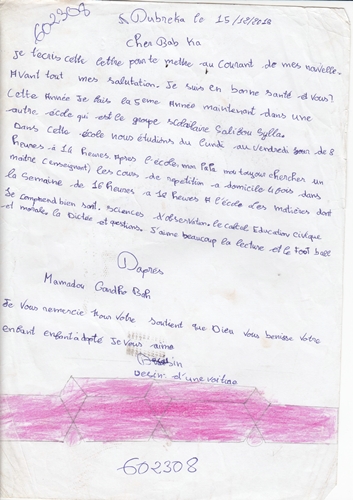 602308
Dubreka le 15/12/2018
Cher Bab Ka
Je t'ecris cette lettre pour te mettre au courant de mes nouvelle.
Avant tout mes salutation. Je suis en bonne santé et vous?
Cette Année Je fais la 5eme Année maintenant dans une
autre école qui est le groupe scolaire Salifou Sylla.
Dans cette école nous étudions du lundi au vendredi de 8
heures à 14 heures Apres l'école mon papa mon toujour chercher un
maître (enseignant) les cours de repetition a domicile 4 fois dans
la semaine de 16 heures a 18 heures A l'école les matières dont
Je comprend bien sont. sciences d'observation. le calcul Education civique
et morale. la Dictée et questions. J'aime beaucoup la lecture et le foot ball
D'apres
Mamadou Gandho Bah
Je vous remercie pour votre soutient que Dieu vous benisse votre
enfant enfant adopté Je vous aime
Dessin
Dessin d'une voiture
602308